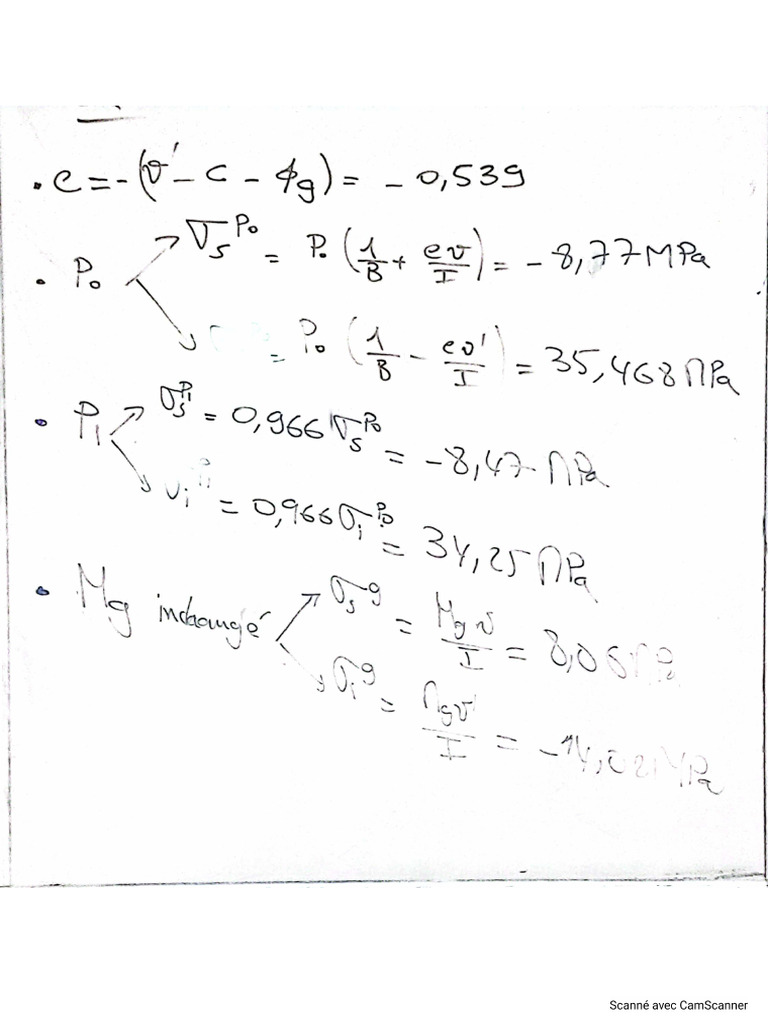 • e = -(v' - c - ϕg) = - 0,539
• P₀ ↗ σₛ^P₀ = P₀ (1/B + ev/I) = - 8,77 MPa
↘ = P₀ (1/B - ev'/I) = 35,468 MPa
• P₁ ↗ σₛ^P₁ = 0,966 σₛ^P₀ = -8,47 MPa
↘ σᵢ^P₁ = 0,966 σᵢ^P₀ = 34,25 MPa
• Mg inchangé ↗ σₛ^g = Mg v/I = 8,06 MPa
↘ σᵢ^g = Mg v'/I = -14,021 MPa
Scanné avec CamScanner